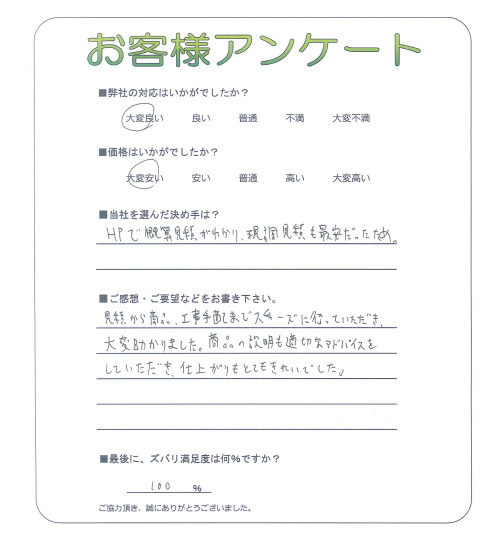 お客様アンケート
■弊社の対応はいかがでしたか？
大変良い 良い 普通 不満 大変不満
■価格はいかがでしたか？
大変安い 安い 普通 高い 大変高い
■当社を選んだ決め手は？
HPで概算見積がわかり、現調見積も最安だったため。
■ご感想・ご要望などをお書き下さい。
見積から商品、工事手配までスムーズに行っていただき、
大変助かりました。商品の説明も適切なアドバイスを
していただき、仕上がりもとてもきれいでした。
■最後に、ズバリ満足度は何％ですか？
100 %
ご協力頂き、誠にありがとうございました。